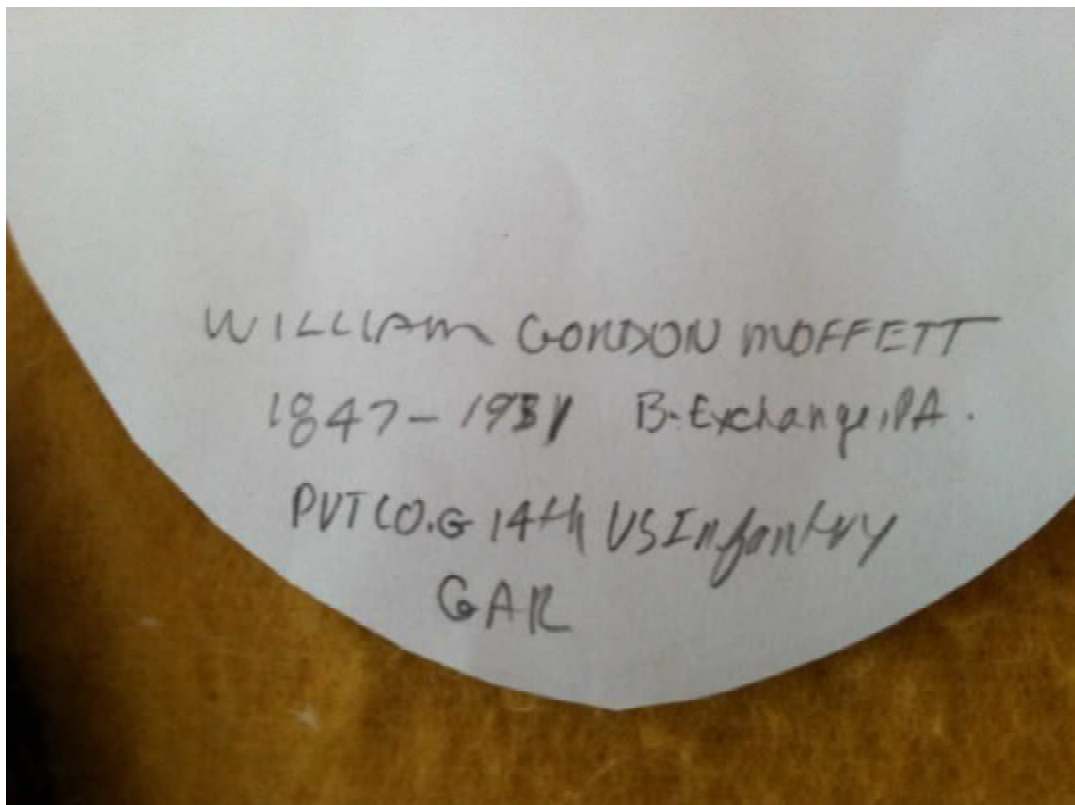 WILLIAM GORDON MOFFETT
1847-1931 B. Exchange, PA.
PVT CO. G 14th US Infantry
GAR